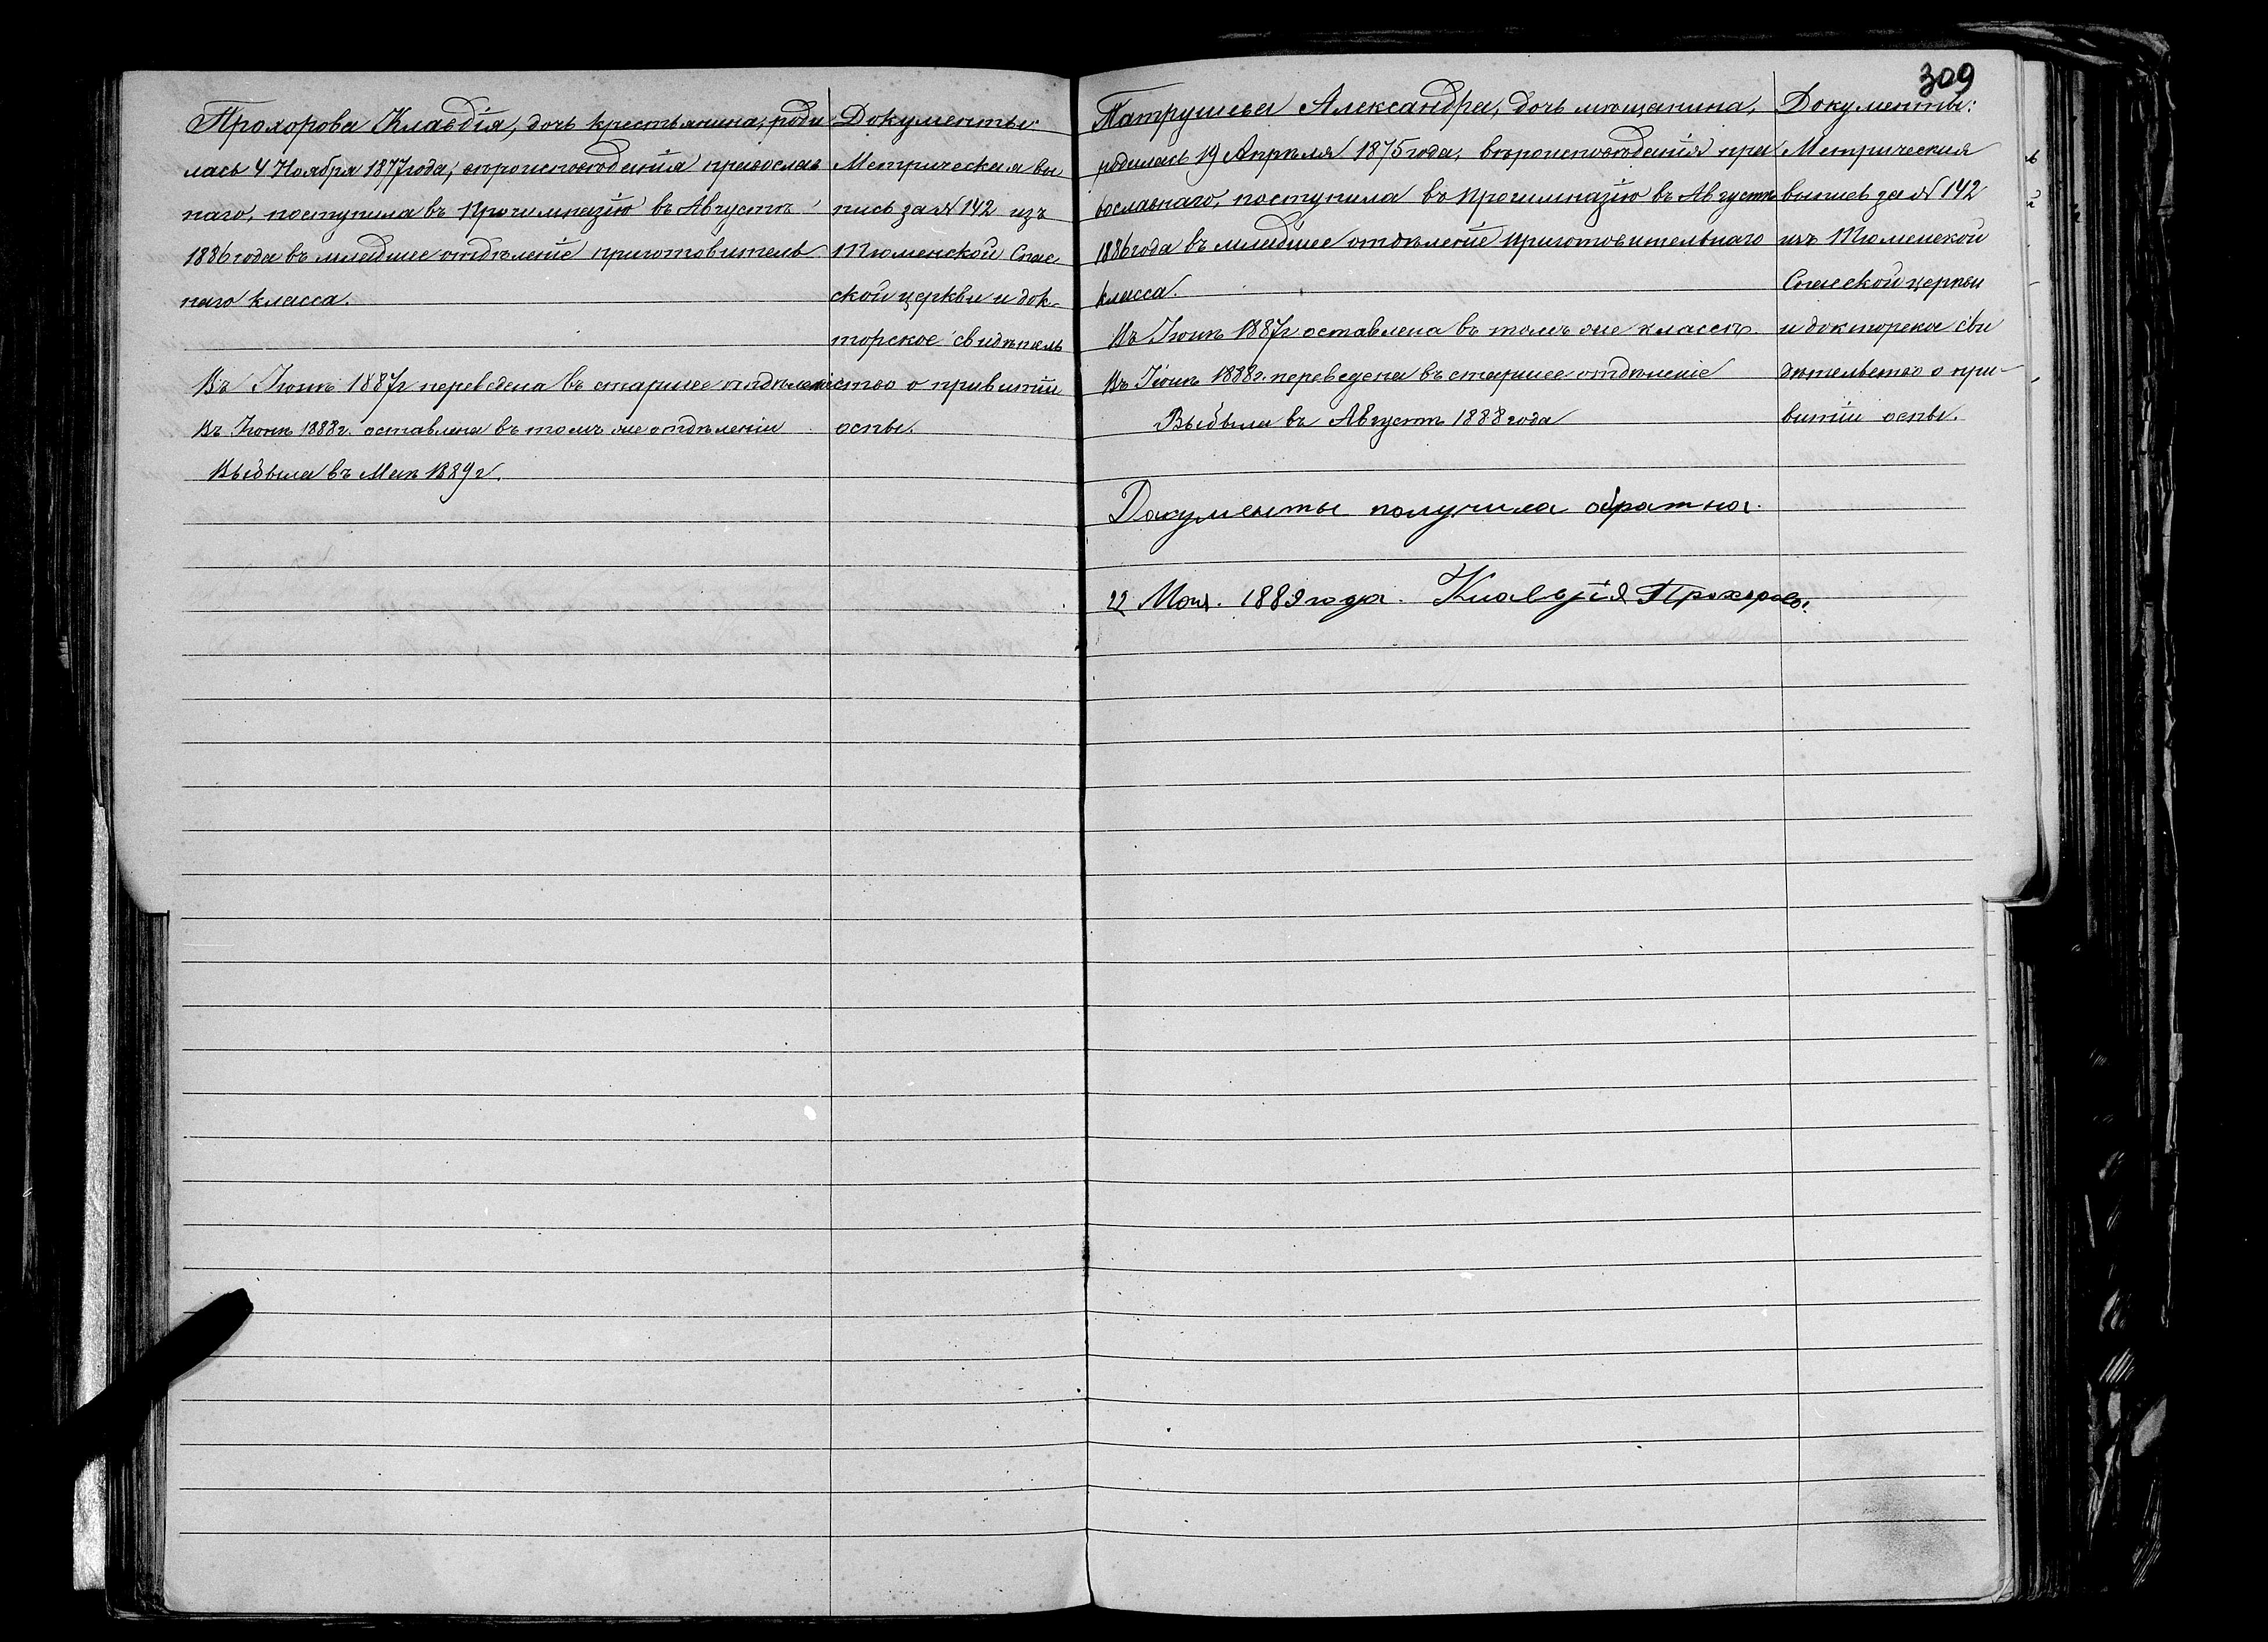 Прохорова Клавдія, дочь крестьянина, роди
лась 4 Ноября 1877 года, вѣроисповѣданія православ
наго, поступила въ Прогимназію въ Августѣ
1886 года въ младшее отдѣленіе приготовитель
наго класса.
Въ Іюнѣ 1887 г переведена въ старшее отдѣленіе
Въ Іюнѣ 1888 г. оставлена въ томъ же отдѣленіи
Выбыла въ Маѣ 1889 г.
Документы:
Метрическая вы
пись за № 142 изъ
Тюменской Спас
ской церкви и док-
торское свидѣтель
ство о привитіи
оспы.
309
Патрушева Александра, дочь мѣщанина,
родилась 19 Апрѣля 1875 года, вѣроисповѣданія пра
вославнаго, поступила въ Прогимназію въ Августѣ
1886 года въ младшее отдѣленіе приготовительнаго
класса.
Въ Іюнѣ 1887 г. оставлена въ томъ же классѣ
Въ Іюнѣ 1888 г. переведена въ старшее отдѣленіе
Выбыла въ Августѣ 1888 года
Документы получила обратно.
22 Мая. 1889 года. Клавдія Прохорова.
Документы:
Метрическая
выпись за № 142
изъ Тюменской
Спасской церкви
и докторское сви
дѣтельство о при-
витіи оспы.